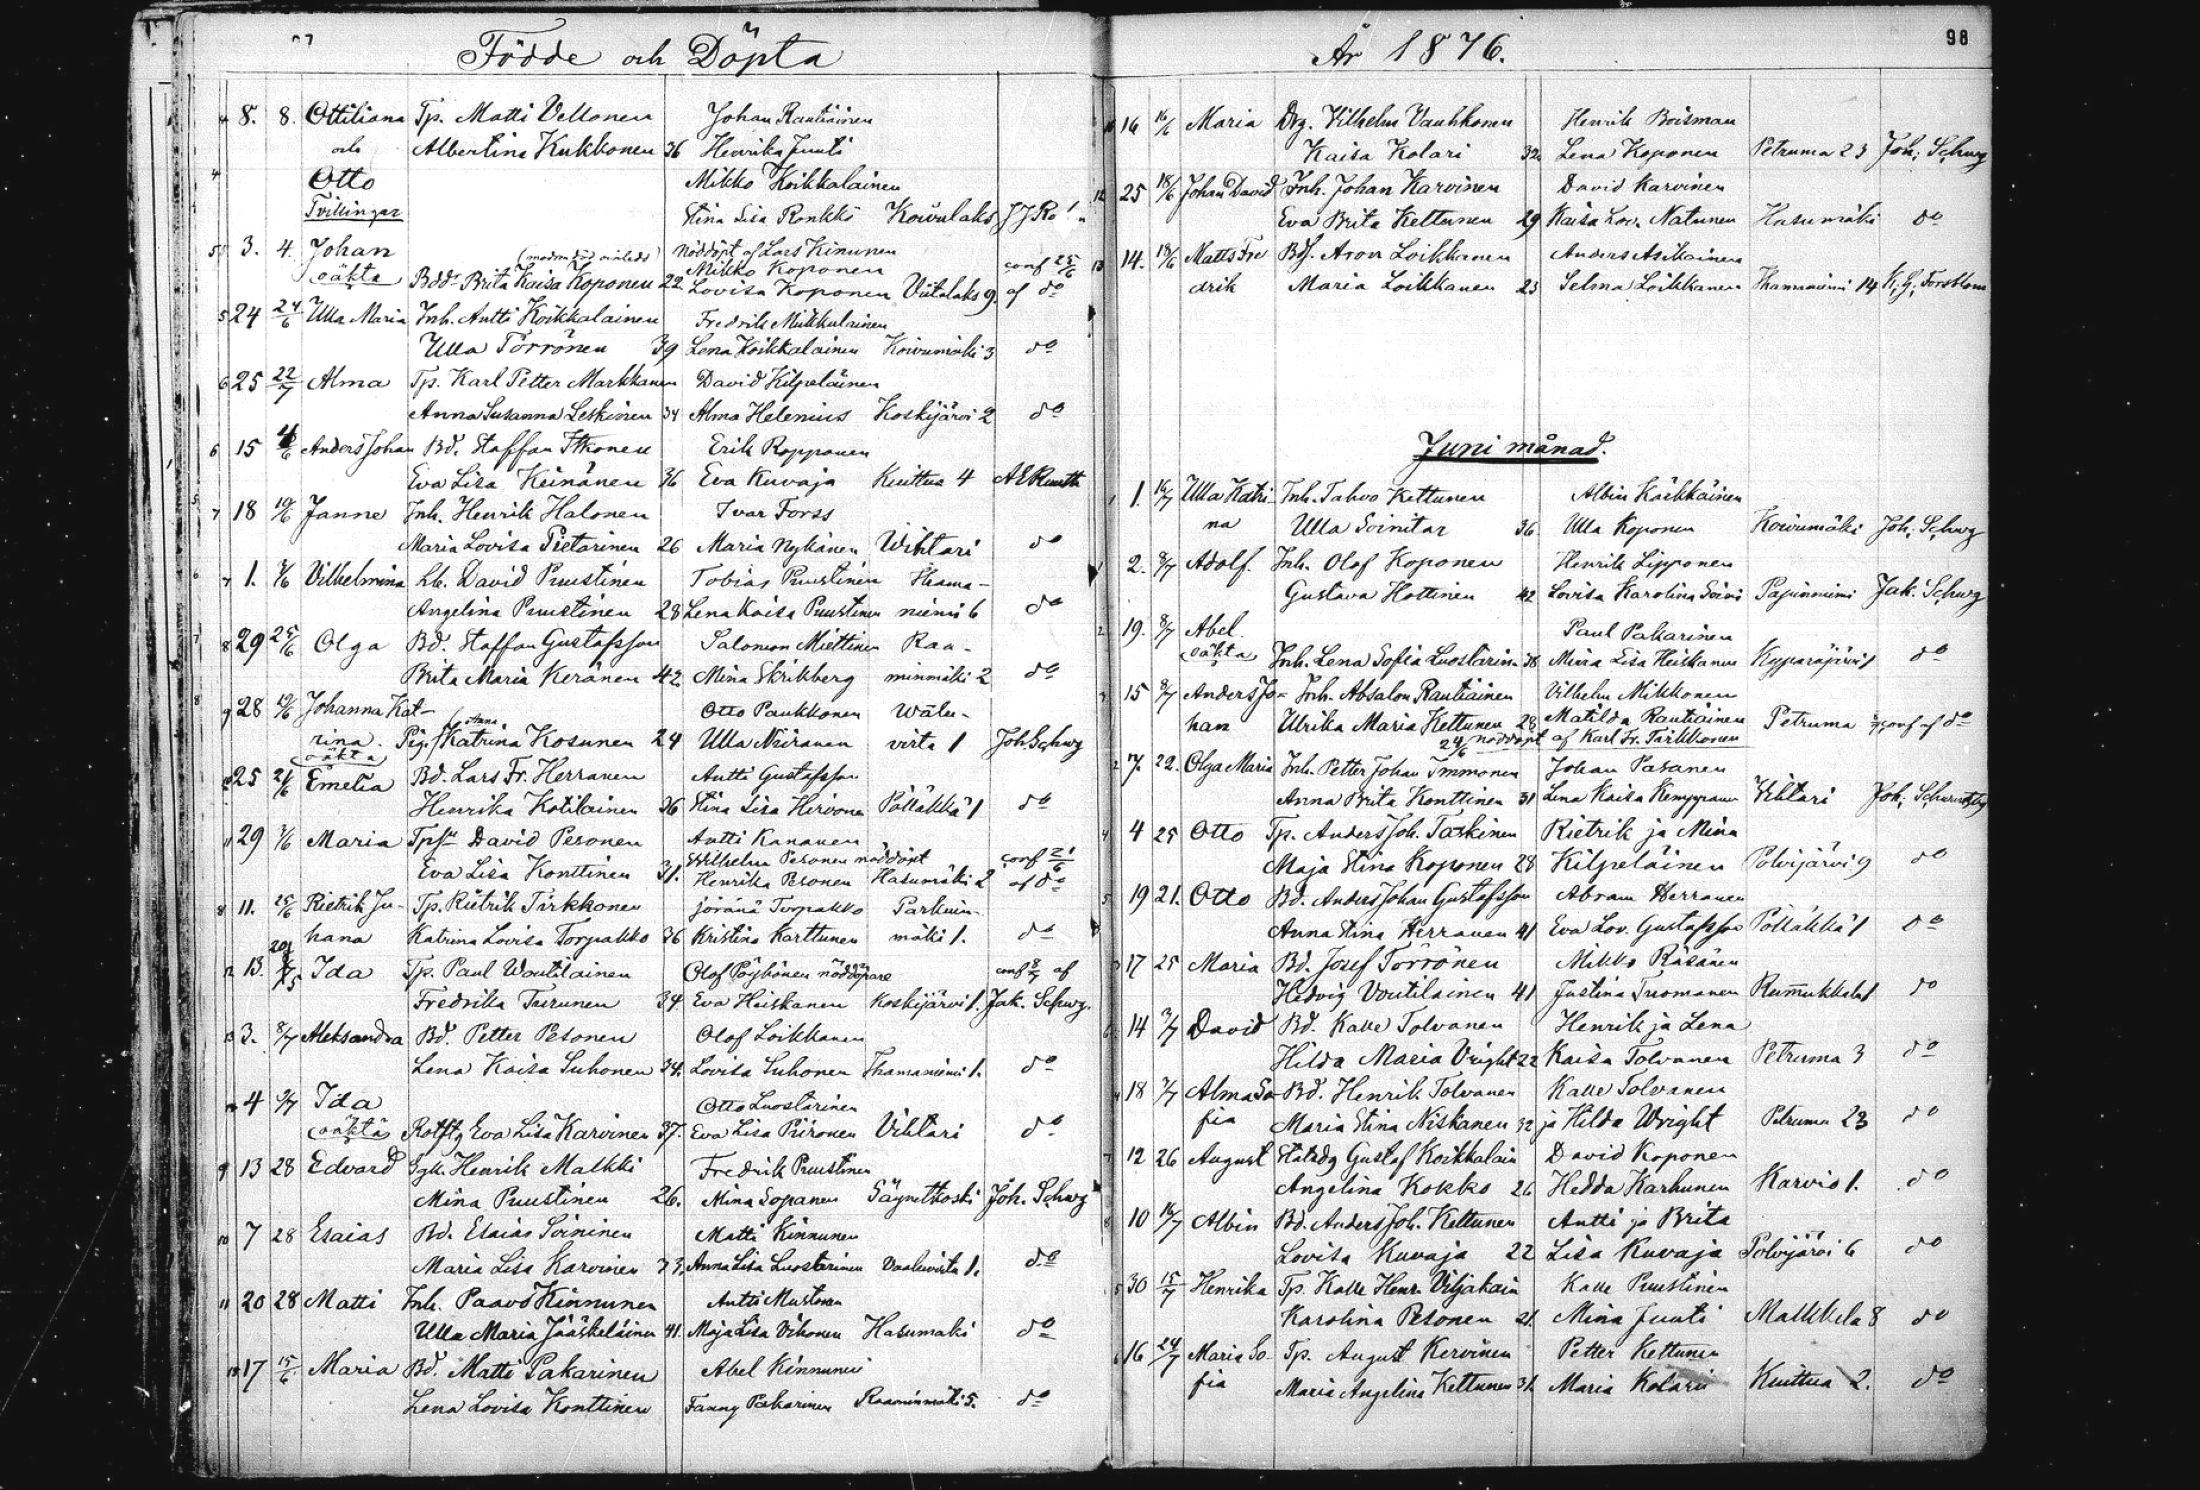 Födde och Döpta
8. 8. Ottiliana Tp. Matti Vellonen Johan Rautiainen
och Albertina Kukkonen 36 Henrika Juuti
Otto Mikko Koikkalainen
Tvillingar Stina Lisa Ronkkö Koivulaks
3. 4. Johan nöddöpt af Lars Kinunen
Mikko Koponen conf 25/6
oäkta Brita Kaisa Koponen 22 Lovisa Koponen Viitalaks 9. af do
24 24/6 Ulla Maria Inh. Antti Koikkalainen Fredrik Miikkulainen
Ulla Törrönen 39 Lena Koikkalainen Koivumäki 3 do
25 22/7 Alma Tp. Karl Petter Markkanen David Kilpeläinen
Anna Susanna Leskinen 34 Alma Helenius Koskijärvi 2 do
15 Anders Johan Bd. Staffan Itkonen Erik Ropponen
Eva Lisa Keinänen 36 Eva Kuvaja Kuittua 4
18 10/6 Janne Inh. Henrik Halonen Ivar Forss
Maria Lovisa Pietarinen 26 Maria Nykänen Wihtari do
1. Vilhelmina Lb. David Puustinen Tobias Puustinen Ihama-
Angelina Puustinen 28 Lena Kaisa Puustinen niemi 6 do
29 25/6 Olga Bd. Staffan Gustafsson Salomon Miettinen Raa-
Brita Maria Keränen 42 Mina Skrikberg minmäki 2 do
28 Johanna Kat- Otto Paukkonen Wälu-
Anna
rina. Pig. Katrina Kosunen 24 Ulla Niiranen virta 1 Joh Schwg
oäkta
25 Emelia Bd. Lars Fr. Herranen Antti Gustafsson
Henrika Kotilainen 36 Stina Lisa Hirvonen Pölläkkä 1 do
29 Maria David Pesonen Antti Kananen
Wilhelm Pesonen nöddöpt conf 21/6
Eva Lisa Konttinen 31. Henrika Pesonen Hasumäki 2 af do
11. 25/6 Rietrik Ju- Tp. Rietrik Tirkkonen Torpakko Parkuin-
hana Katrina Lovisa Torpakko 36 Kristina Karttunen mäki 1. do
13. Ida Tp. Paul Woutilainen Olof Pöyhönen nöddöpare conf 8/7 af
Fredrika Turunen 34 Eva Heiskanen Koskijärvi 1. Jak. Schwg.
3. 8/7 Aleksandra Bd. Petter Pesonen Olof Loikkanen
Lena Kaisa Suhonen 34. Lovisa Suhonen Ihamaniemi 1. do
4 9/7 Ida Otto Luostarinen
oäkta Eva Lisa Karvinen 37. Eva Lisa Piironen Vihtari do
13 28 Edvard Henrik Malkki Fredrik Puustinen
Mina Puustinen 26. Mina Sopanen Säynetkoski Joh. Schwg
7 28 Esaias Bd. Esaias Soininen Matti Kinnunen
Maria Lisa Karvinen 33. Anna Lisa Luostarinen Vaaluvirta 1. do
20 28 Matti Inh. Paavo Kinnunen Antti Mustonen
Ulla Maria Jääskeläinen 41. Maja Lisa Vihonen Hasumäki do
17 15/6 Maria Bd. Matti Pakarinen Abel Kinnunen
Lena Lovisa Konttinen Fanny Pakarinen Raaminmäki 5. do
År 1876.
98
16 16/6 Maria Drg. Vilhelm Vauhkonen Henrik Boisman
Kaisa Kolari 32. Lena Koponen Petruma 23 Joh. Schwg
25 18/6 Johan David Inh. Johan Karvinen David Karvinen
Eva Brita Kettunen 29 Kaisa Lov. Natunen Hasumäki do
14. 18/6 Matts Fre Bds. Aron Loikkanen Anders Asikainen
drik Maria Loikkanen 23 Selma Loikkanen Ihamaniemi 14 K. G. Forsblom
Juni månad.
1. 16/7 Ulla Katri- Inh. Tahvo Kettunen Albin Käkkäinen
na Ulla Soinitar 36. Ulla Koponen Koivumäki Joh. Schwg
2. 8/7 Adolf. Inh. Olof Koponen Henrik Lipponen
Gustava Hottinen 42 Lovisa Karolina Soini Papinniemi Jak. Schwg
19. 8/7 Abel Paul Pakarinen
oäkta Inh. Lena Sofia Luostarinen 38 Miina Lisa Heiskanen Kypäräjärvi 1 do
15 8/7 Anders Jo- Inh. Absalon Rautiainen Vilhelm Mikkonen
han Ulrika Maria Kettunen 28 Matilda Rautiainen Petruma conf af do
24/6 nöddöpt af Karl Fr. Tirkkonen
7. 22. Olga Maria Inh. Petter Johan Immonen Johan Pasanen
Anna Brita Konttinen 31 Lena Kaisa Kemppainen Vihtari
4 25 Otto Tp. Anders Joh. Taskinen Rietrik ja Mina
Maja Stina Koponen 28 Kilpeläinen Polvijärvi 9 do
19 21. Otto Bd. Anders Johan Gustafsson Abram Herranen
Anna Stina Herranen 41 Eva Lov. Gustafsson Pölläkkä 1 do
17 25 Maria Bd. Josef Törrönen Mikko Räsänen
Hedvig Voutilainen 41 Justina Tuomanen Rummukkala 1 do
14 David Bd. Kalle Tolvanen Henrik ja Lena
Hilda Maria Vright 22 Kaisa Tolvanen Petruma 3 do
18 Alma So- Bd. Henrik Tolvanen Kalle Tolvanen
fia Maria Stina Niskanen 32 ja Hilda Wright Petruma 23 do
12 26 August Gustaf Koikkalain David Koponen
Angelina Kokko 26 Hedda Karhunen Karvio 1. do
10 16/7 Albin Bd. Anders Joh. Kettunen Antti ja Brita
Lovisa Kuvaja 22 Lisa Kuvaja Polvijärvi 6 do
30 15/7 Henrika Tp. Kalle Henr. Viljakain Kalle Puustinen
Karolina Pesonen 21. Mina Juuti Malkkila 8 do
16 24/7 Maria So- Tp. August Kervinen Petter Kettunen
fia Maria Angelina Kettunen 31. Maria Kolari Kuittua 2. do